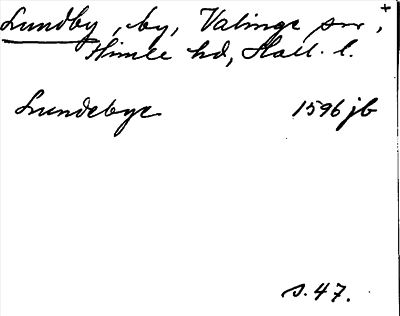 Lundby, by, Valinge sn, +
Himle hd, Hall. l.
Lundebye 1596 jb
s. 47.